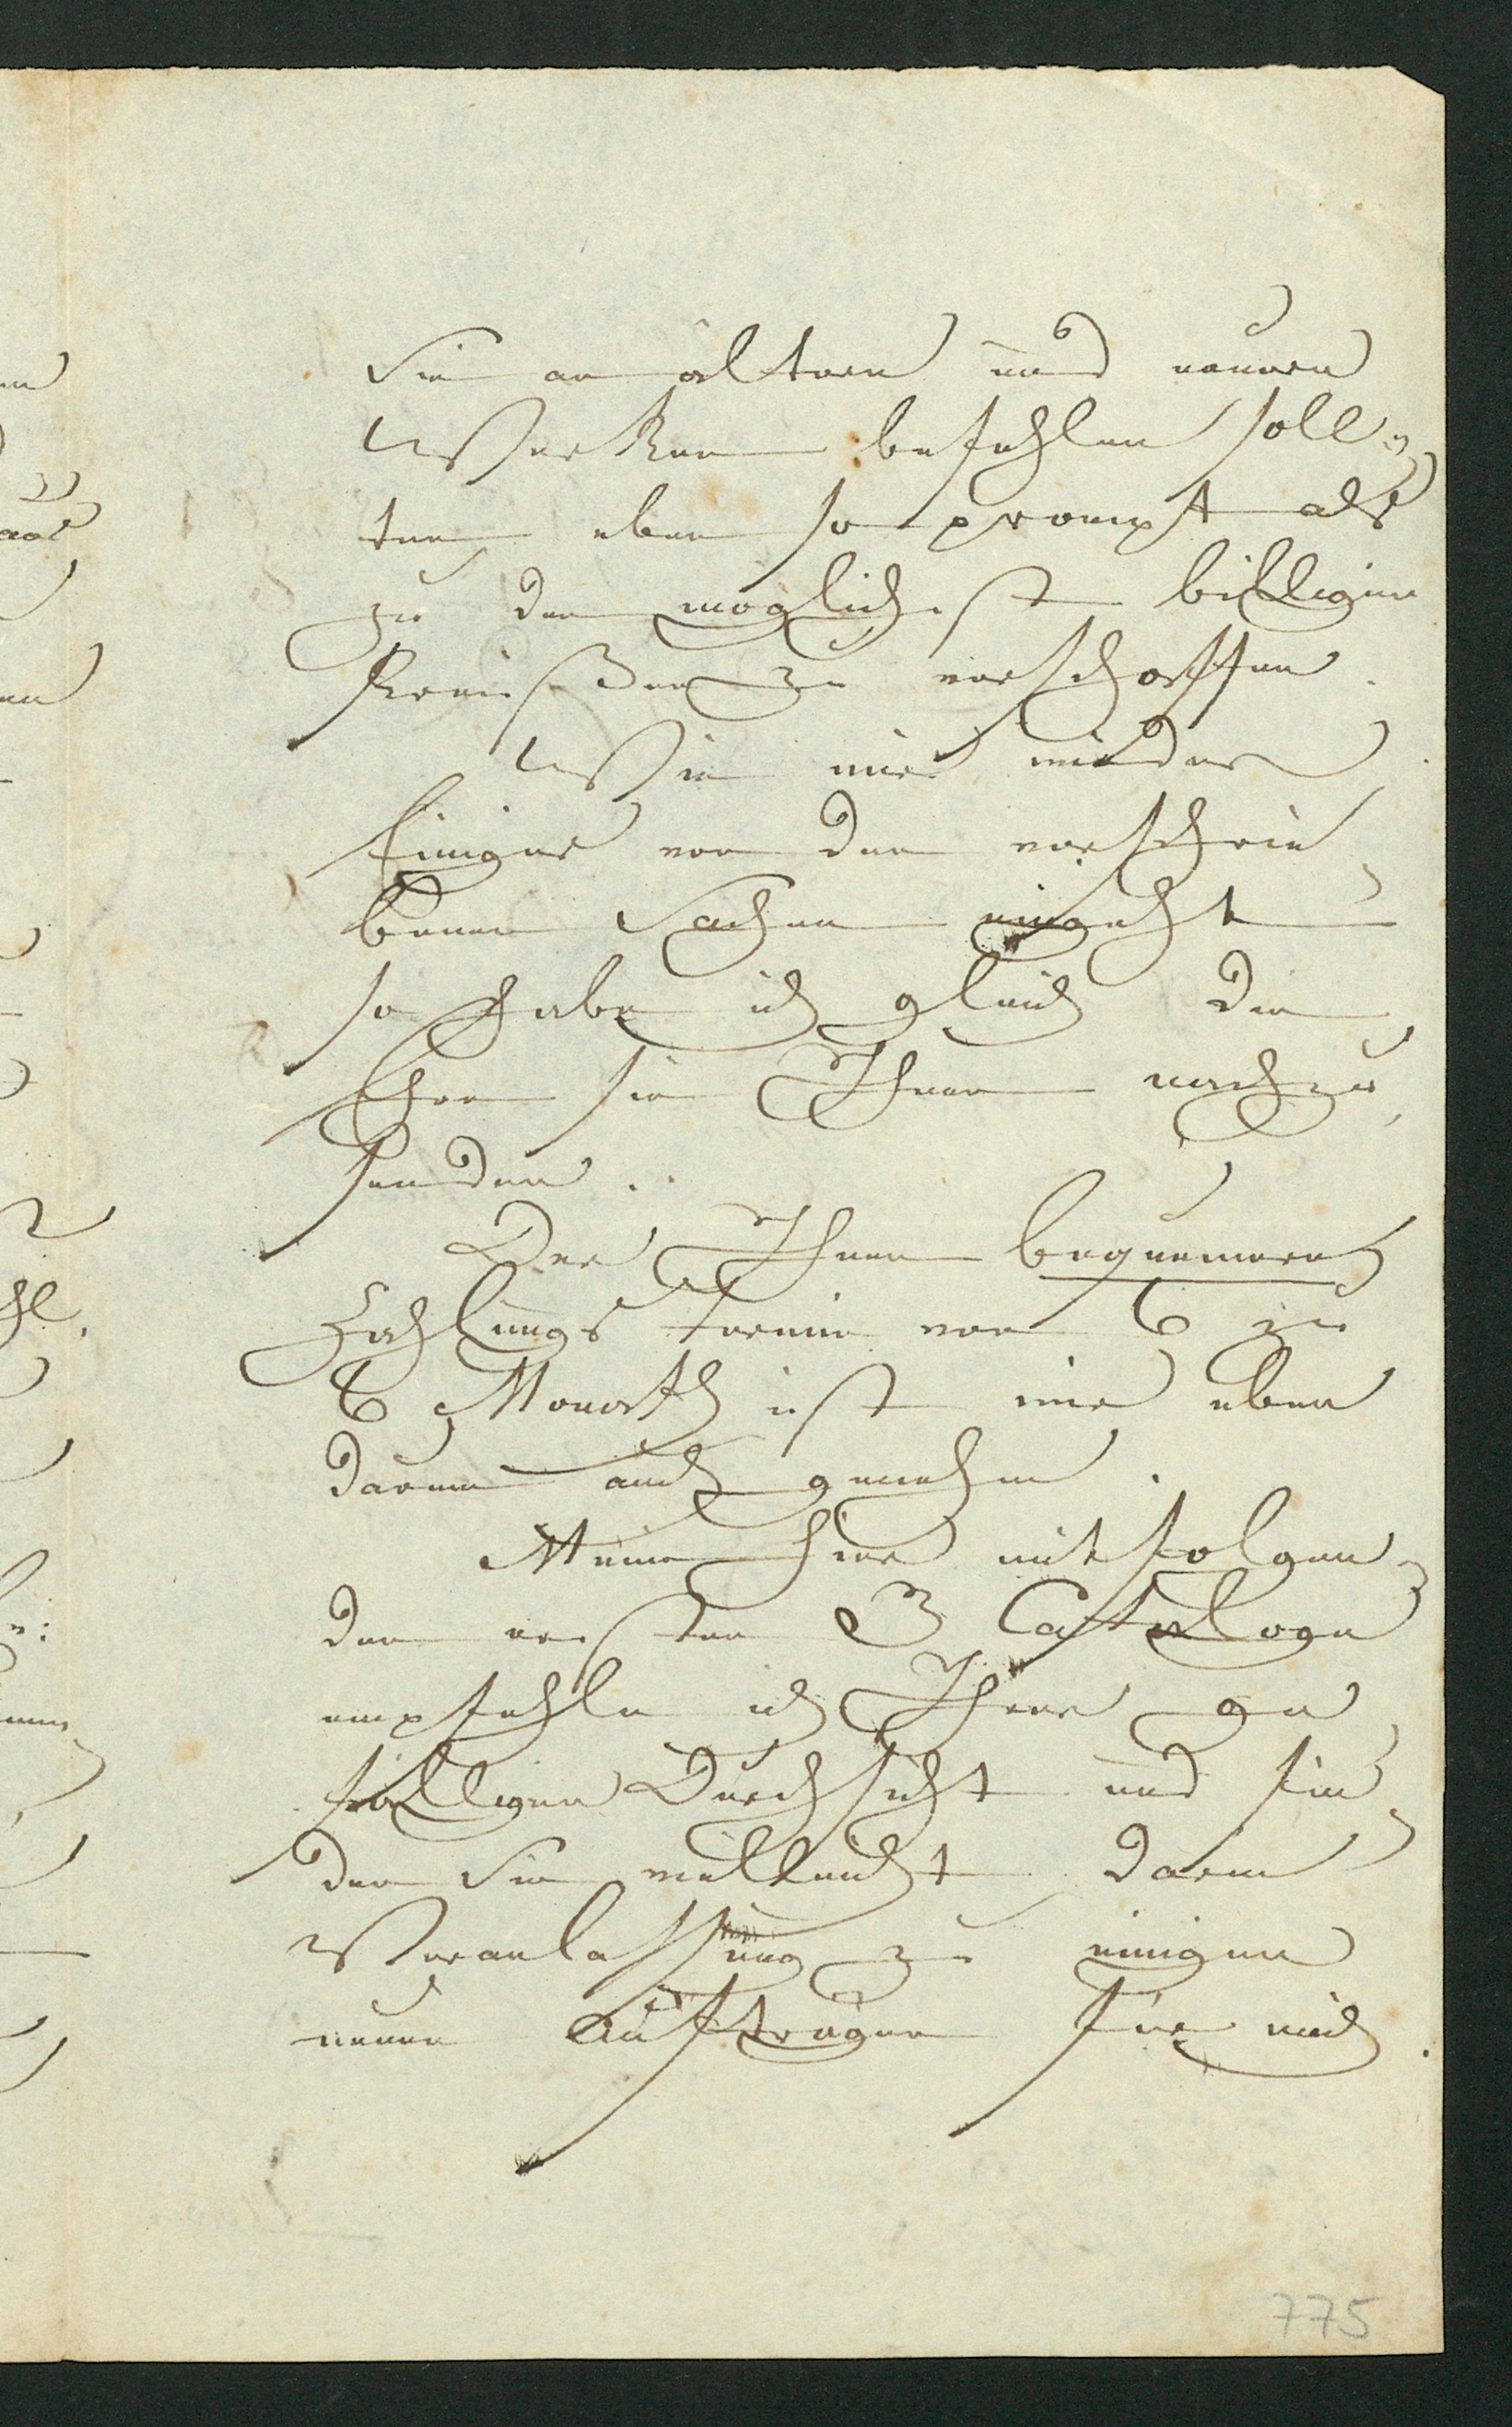 Sie an ältern und neuern
Werken befehlen soll¬
ten, eben so prompt als
zu den möglichst billigen
Preißen zu verschaffen.
Wie mir wieder
Einiges von den verschrie
benen Sachen eingeht
so habe ich gleich die
Ehre sie Ihnen nachzu
senden.
Der Ihnen bequemere
Zahlungs termin von 6 zu
6 Monath ist mir eben
darum auch genehm.
Meine hier mitfolgen¬
den ersten 3 Cataloge
empfehle ich Ihrer ge
fälligen Durchsicht und fin
den Sie vielleicht darin
Veranlassung zu einigen
neuen Aufträgen für mich.
775